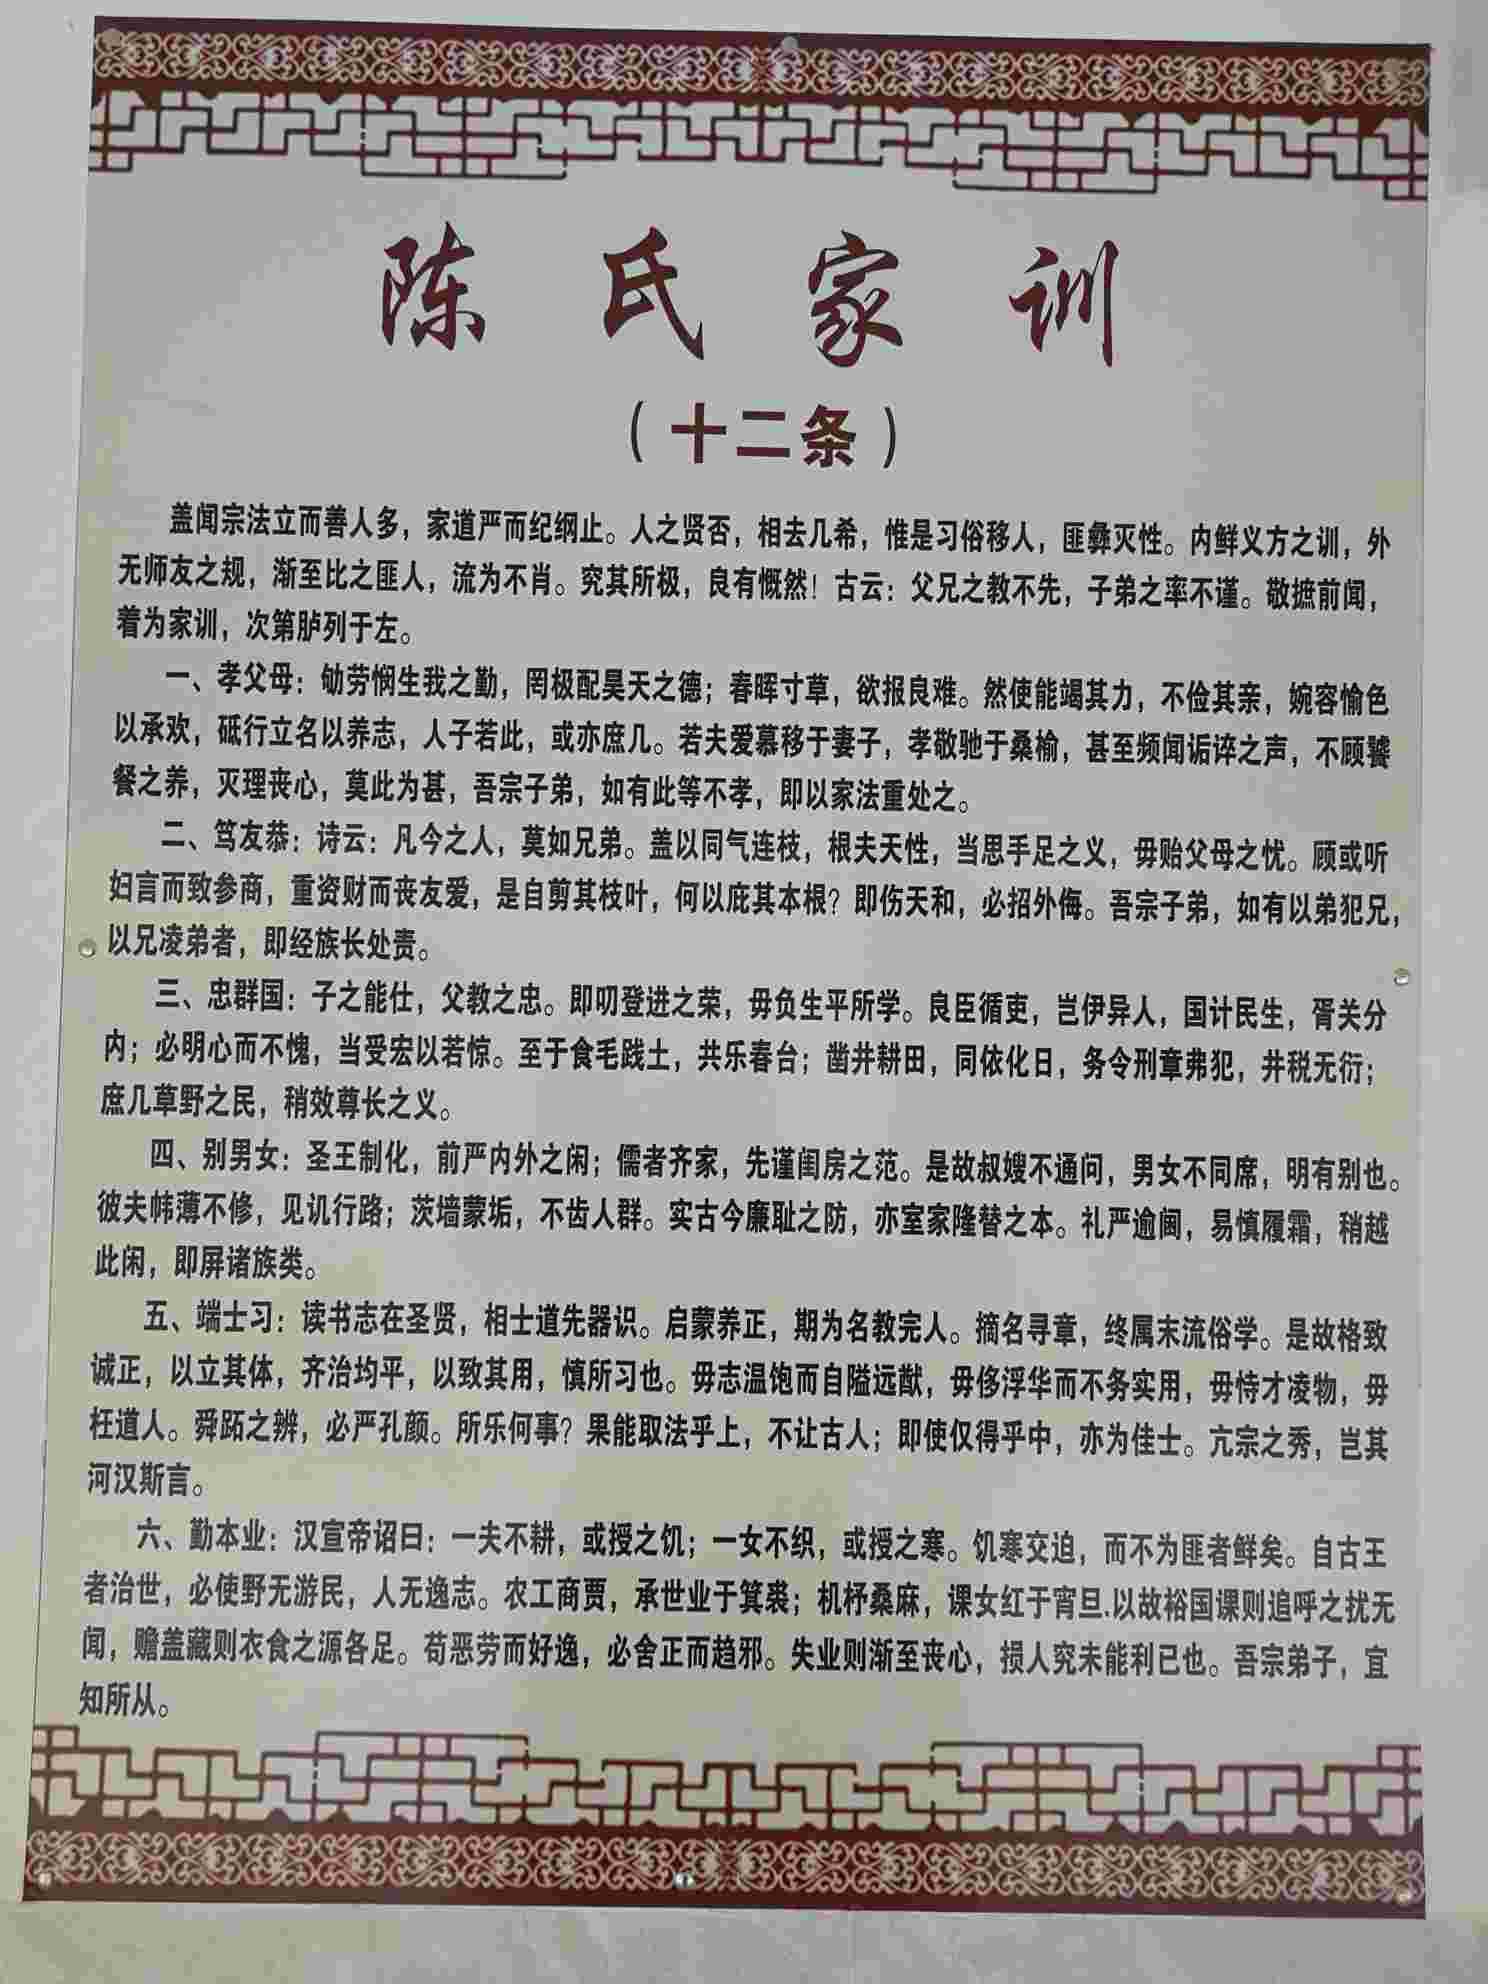 陈氏家训
（十二条）
盖闻宗法立而善人多，家道严而纪纲止。人之贤否，相去几希，惟是习俗移人，匪彝灭性。内鲜义方之训，外
无师友之规，渐至比之匪人，流为不肖。究其所极，良有慨然！古云：父兄之教不先，子弟之率不谨。敬摭前闻，
着为家训，次第胪列于左。
一、孝父母：劬劳悯生我之勤，罔极配昊天之德；春晖寸草，欲报良难。然使能竭其力，不俭其亲，婉容愉色
以承欢，砥行立名以养志，人子若此，或亦庶几。若夫爱慕移于妻子，孝敬驰于桑榆，甚至频闻诟谇之声，不顾饔
餐之养，灭理丧心，莫此为甚，吾宗子弟，如有此等不孝，即以家法重处之。
二、笃友恭：诗云：凡今之人，莫如兄弟。盖以同气连枝，根夫天性，当思手足之义，毋贻父母之忧。顾或听
妇言而致参商，重资财而丧友爱，是自剪其枝叶，何以庇其本根？即伤天和，必招外侮。吾宗子弟，如有以弟犯兄，
以兄凌弟者，即经族长处责。
三、忠群国：子之能仕，父教之忠。即叨登进之荣，毋负生平所学。良臣循吏，岂伊异人，国计民生，胥关分
内；必明心而不愧，当受宏以若惊。至于食毛践土，共乐春台；凿井耕田，同依化日，务令刑章弗犯，井税无衍；
庶几草野之民，稍效尊长之义。
四、别男女：圣王制化，前严内外之闲；儒者齐家，先谨闺房之范。是故叔嫂不通问，男女不同席，明有别也。
彼夫帏薄不修，见讥行路；茨墙蒙垢，不齿人群。实古今廉耻之防，亦室家隆替之本。礼严逾阃，易慎履霜，稍越
此闲，即屏诸族类。
五、端士习：读书志在圣贤，相士道先器识。启蒙养正，期为名教完人。摘名寻章，终属末流俗学。是故格致
诚正，以立其体，齐治均平，以致其用，慎所习也。毋志温饱而自隘远猷，毋侈浮华而不务实用，毋恃才凌物，毋
枉道人。舜跖之辨，必严孔颜。所乐何事？果能取法乎上，不让古人；即使仅得乎中，亦为佳士。亢宗之秀，岂其
河汉斯言。
六、勤本业：汉宣帝诏曰：一夫不耕，或授之饥；一女不织，或授之寒。饥寒交迫，而不为匪者鲜矣。自古王
者治世，必使野无游民，人无逸志。农工商贾，承世业于箕裘；机杼桑麻，课女红于宵旦.以故裕国课则追呼之扰无
闻，赡盖藏则衣食之源各足。苟恶劳而好逸，必舍正而趋邪。失业则渐至丧心，损人究未能利已也。吾宗弟子，宜
知所从。